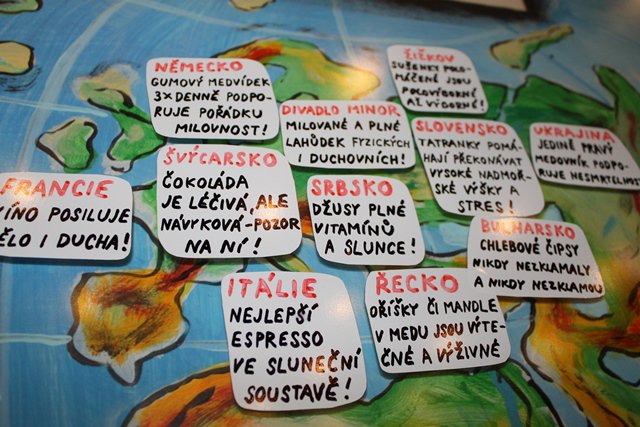 NĚMECKO
GUMOVÝ MEDVÍDEK
3x DENNĚ PODPO-
RUJE POŘÁDKU
MILOVNOST!
ŽIŽKOV
SUŠENKY POLO-
MÁČENÉ JSOU
POLOVÝBORNÉ
AŽ VÝBORNÉ!
DIVADLO MINOR
MILOVANÉ A PLNÉ
LAHŮDEK FYZICKÝCH
I DUCHOVNÍCH!
SLOVENSKO
TATRANKY POMÁ-
HAJÍ PŘEKONÁVAT
VYSOKÉ NADMOŘ-
SKÉ VÝŠKY A
STRES!
UKRAJINA
JEDINĚ PRAVÝ
MEDOVNÍK PODPO-
RUJE NESMRTELNO
FRANCIE
VÍNO POSILUJE
TĚLO I DUCHA!
ŠVÝCARSKO
ČOKOLÁDA
JE LÉČIVÁ, ALE
NÁVYKOVÁ - POZOR
NA NÍ!
SRBSKO
DŽUSY PLNÉ
VITAMÍNŮ
A SLUNCE!
BULHARSKO
CHLEBOVÉ ČIPSY
NIKDY NEZKLAMALY
A NIKDY NEZKLAMOU
ITÁLIE
NEJLEPŠÍ
ESPRESSO
VE SLUNEČNÍ
SOUSTAVĚ!
ŘECKO
OŘÍŠKY ČI MANDLE
V MEDU JSOU VÝTE-
ČNÉ A VÝŽIVNÉ